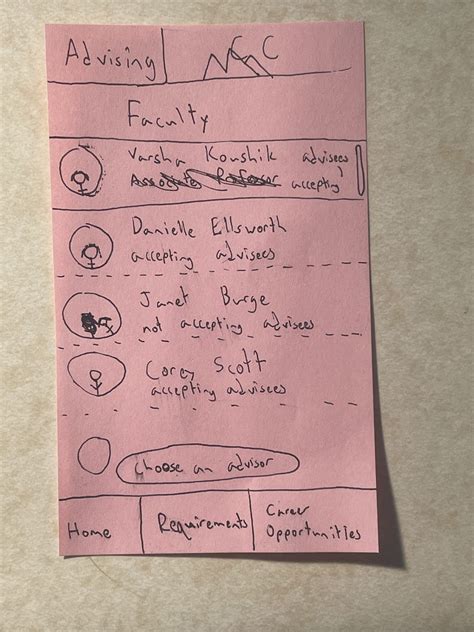 Advising
CC
Faculty
Varsha Koushik advisees
Associate Professor accepting
Danielle Ellsworth
accepting advisees
Janet Burge
not accepting advisees
Corey Scott
accepting advisees
Choose an advisor
Home
Requirements
Career
Opportunities